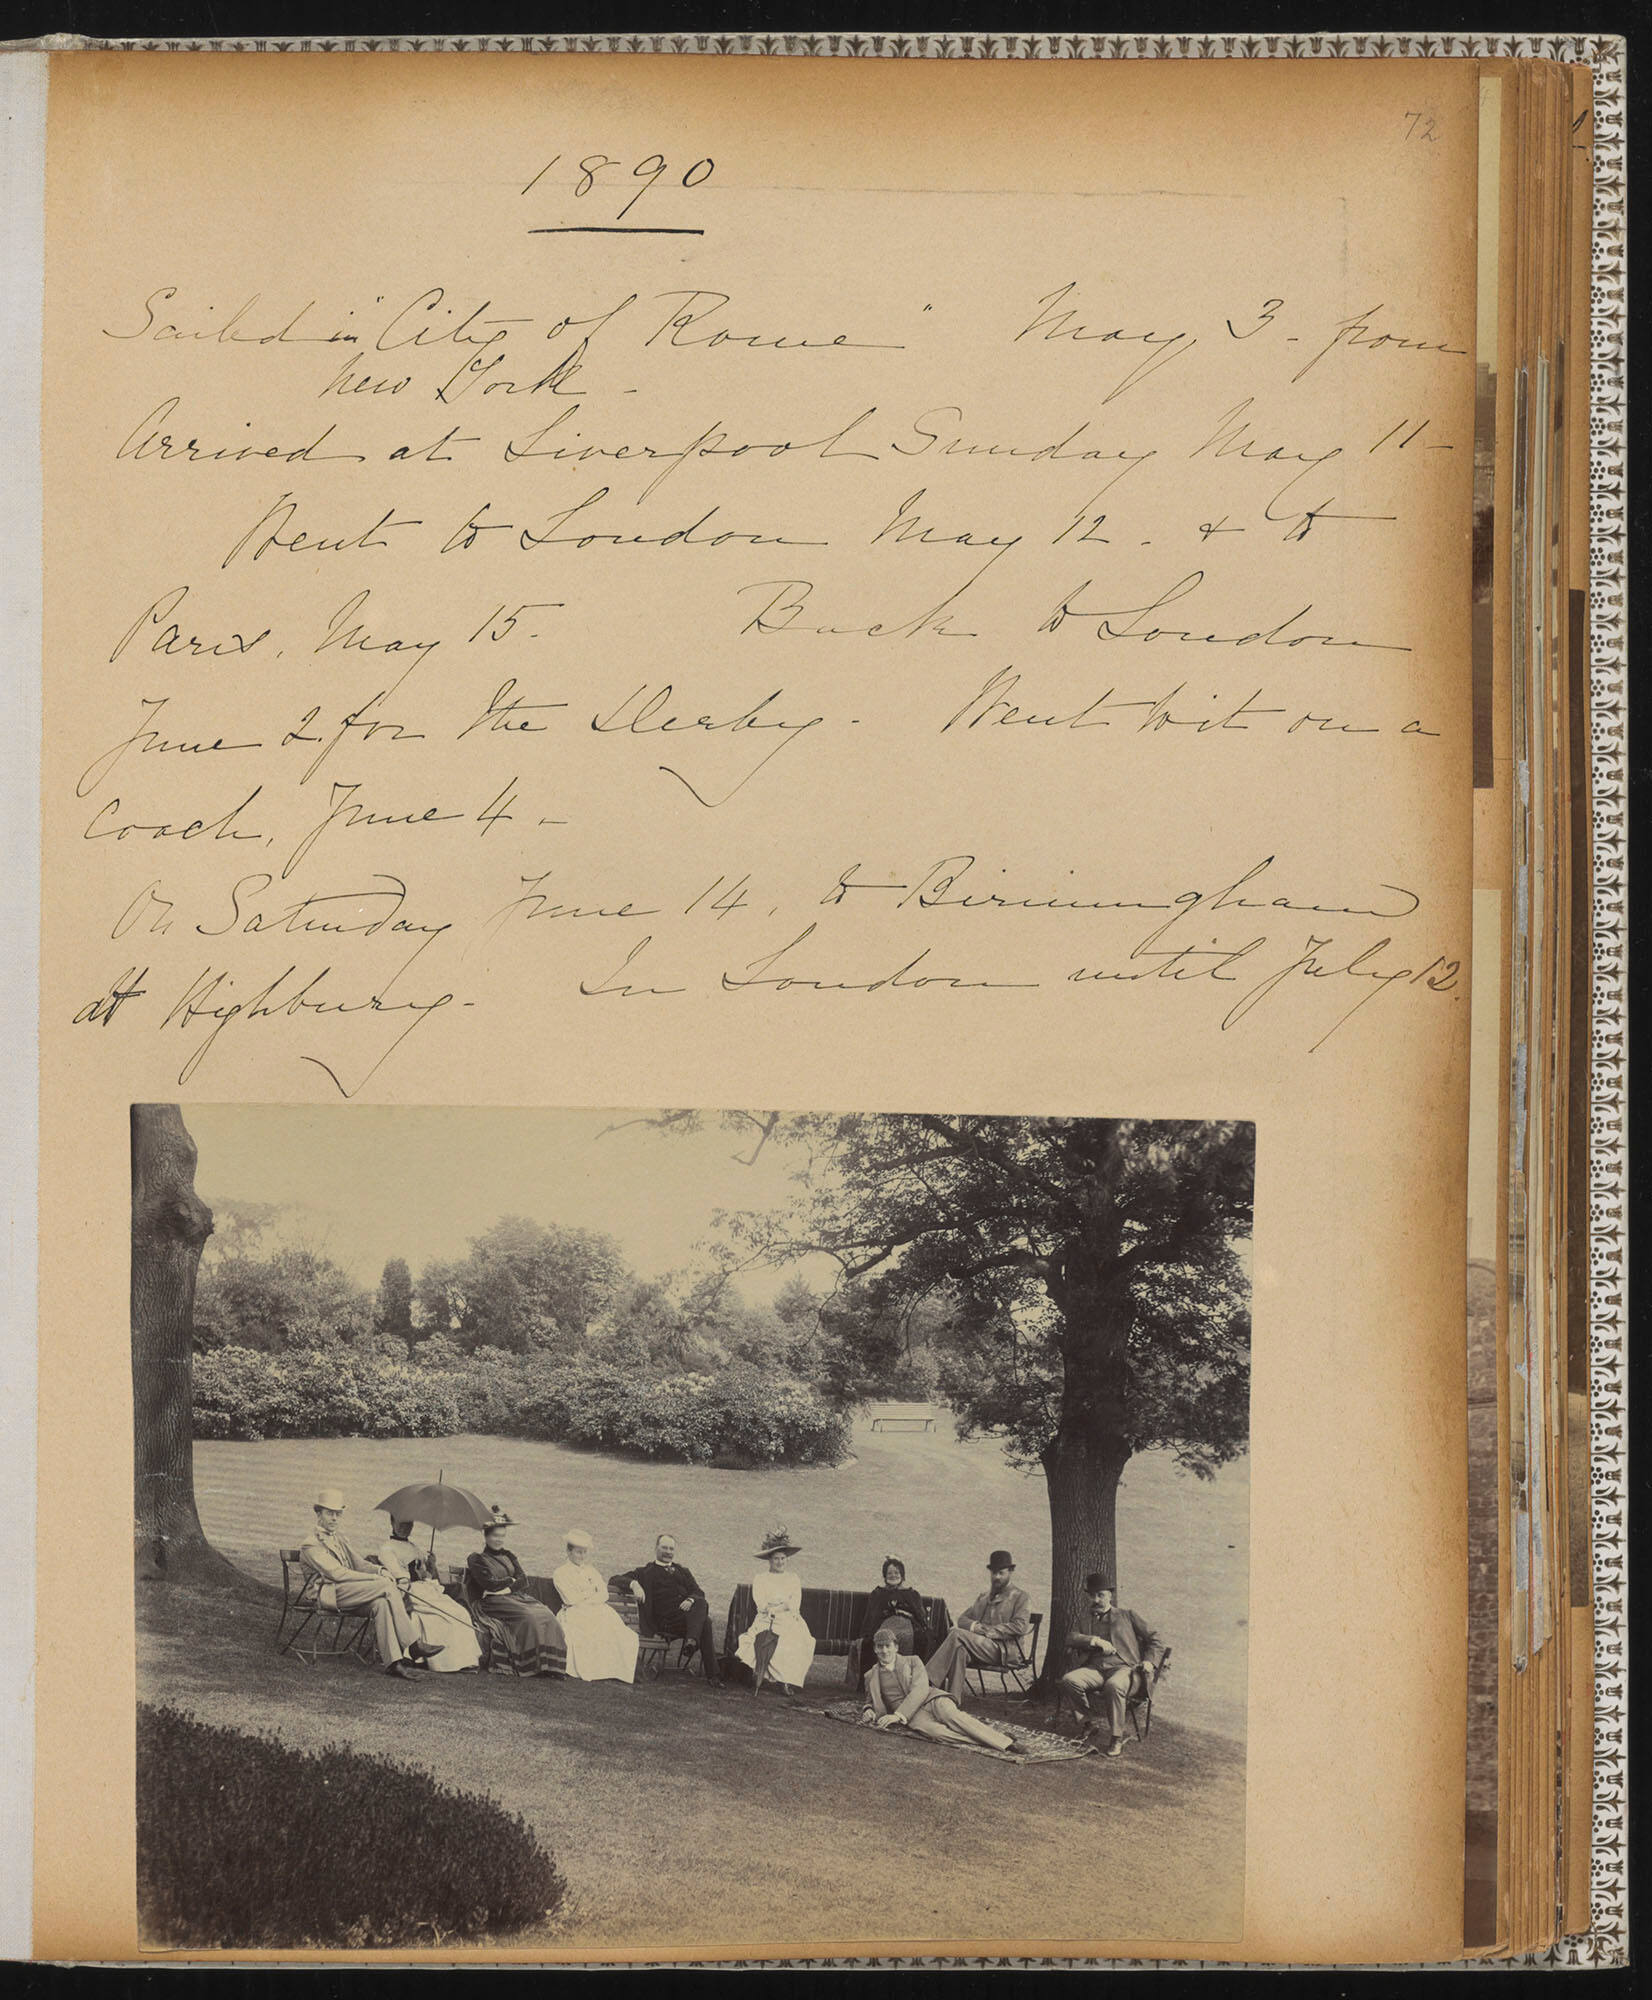 72
1890
Sailed in "City of Rome" May 3 - from
New York -
Arrived at Liverpool Sunday May 11 -
Went to London May 12 - & to
Paris, May 15 - Back to London
June 2. for the Derby - Went to it on a
coach, June 4 -
On Saturday June 14, to Birmingham
at Highbury - In London until July 12.